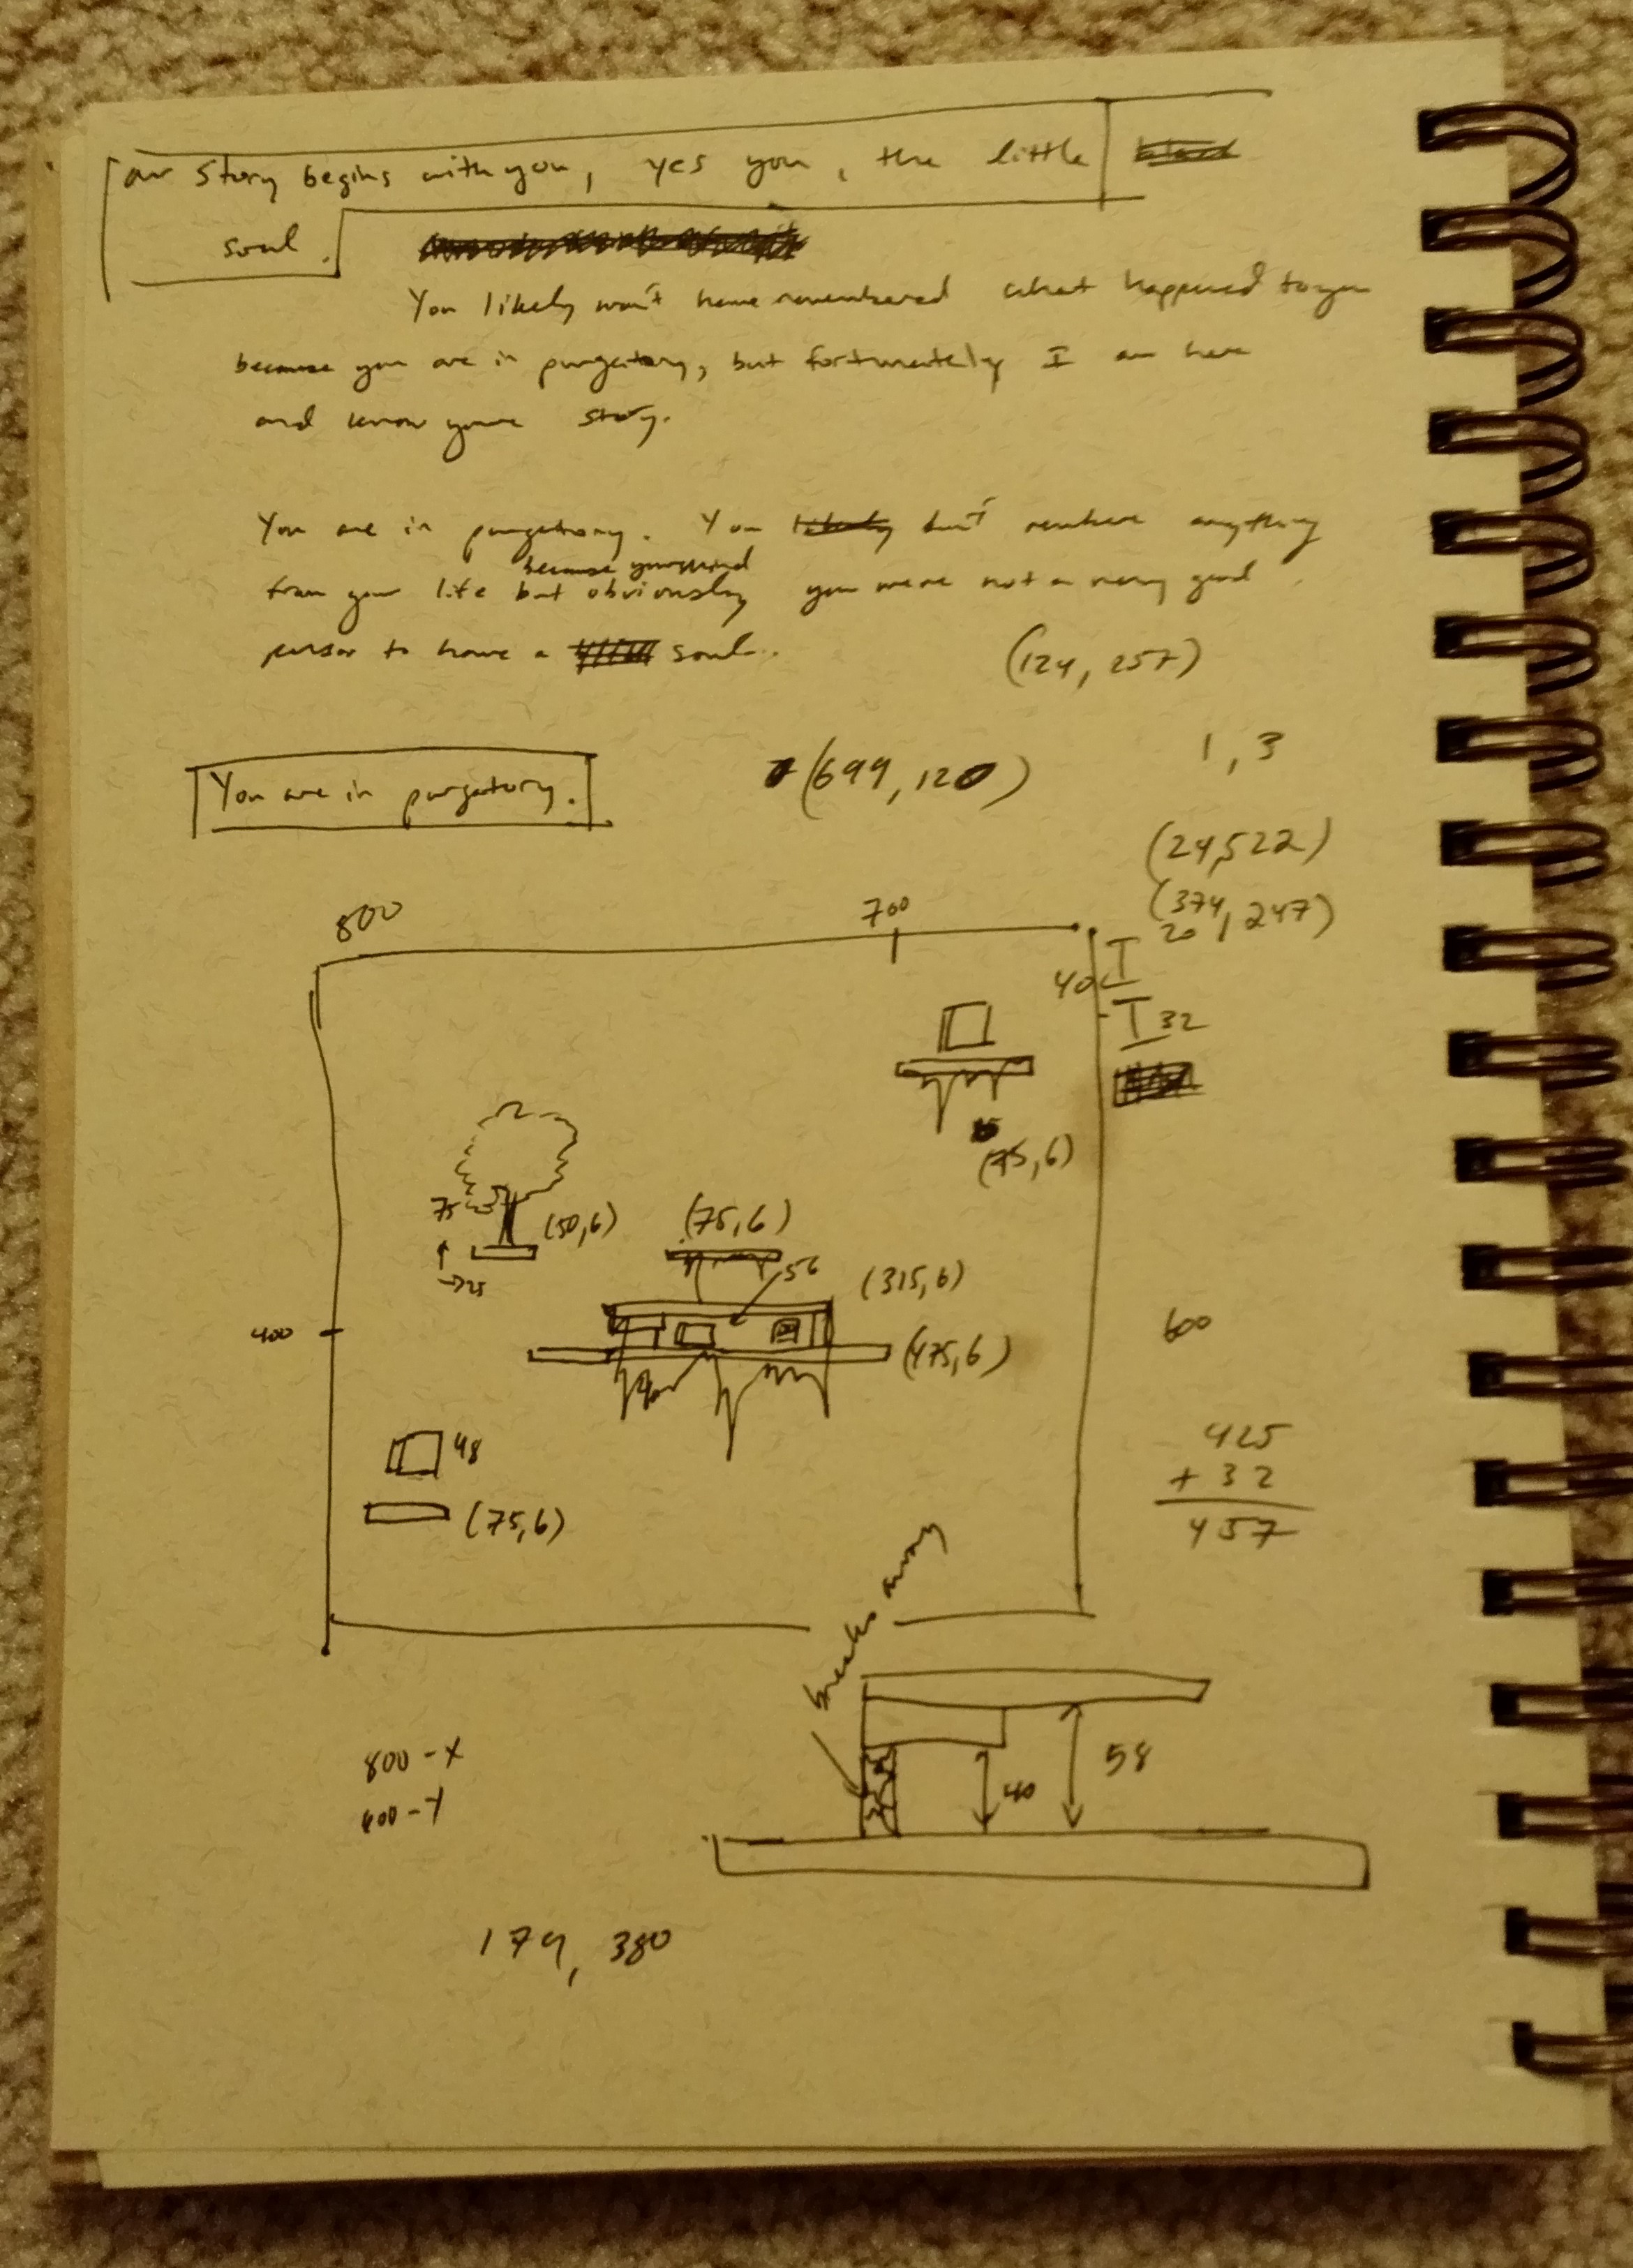 our story begins with you, yes you, the little
soul.
You likely won't have remembered what happened to you
because you are in purgatory, but fortunately I am here
and know your story.
You are in purgatory. You don't remember anything
because your mind
from your life but obviously you were not a very good
person to have a soul.
(124, 257)
1, 3
You are in purgatory.
(699, 120)
(24,522)
(374, 247)
20
800
700
40
32
(75,6)
75
(50,6)
(75,6)
→25
56
(315,6)
400
(475,6)
600
48
(75,6)
425
+ 32
457
breaks away
800 - X
600 - Y
58
40
179, 380